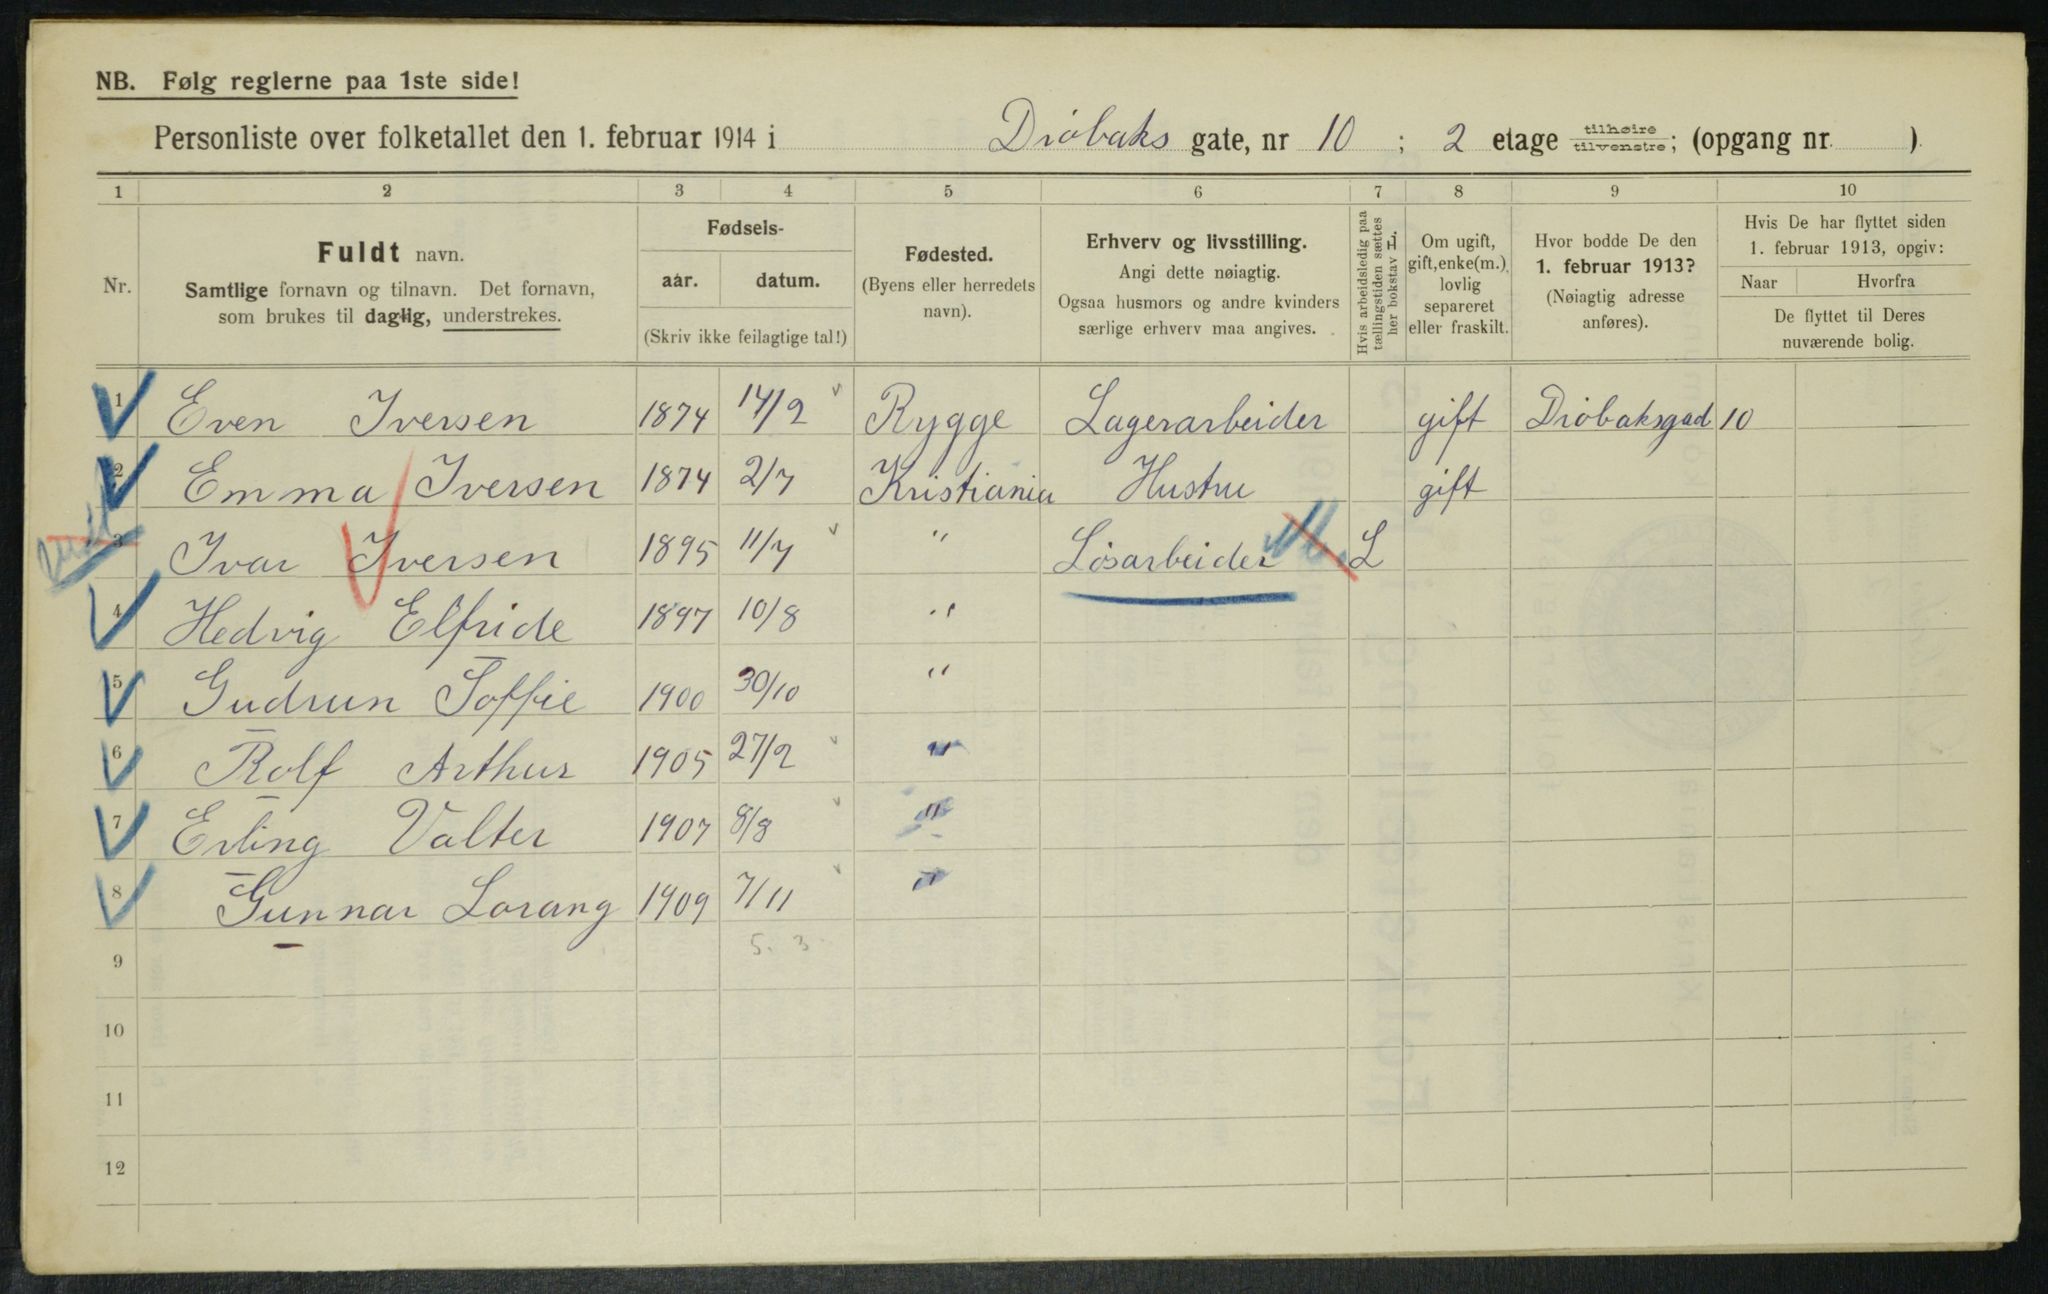 NB. Følg reglerne paa 1ste side!
Personliste over folketallet den 1. februar 1914 i Drøbaks gate, nr 10 ; 2 etage tilhøire tilvenstre; (opgang nr. )
1 2 3 4 5 6 7 8 9 10
Nr.
Fuldt navn.
Samtlige fornavn og tilnavn. Det fornavn,
som brukes til daglig, understrekes.
Fødsels-
aar. datum.
(Skriv ikke feilagtige tal!)
Fødested.
(Byens eller herredets
navn).
Erhverv og livsstilling.
Angi dette nøiagtig.
Ogsaa husmors og andre kvinders
særlige erhverv maa angives.
Hvis arbeidsledig paa
tællingstiden sættes
her bokstav L.
Om ugift,
gift, enke(m.)
lovlig
separeret
eller fraskilt.
Hvor bodde De den
1. februar 1913?
(Nøiagtig adresse
anføres).
Hvis De har flyttet siden
1. februar 1913, opgiv:
Naar Hvorfra
De flyttet til Deres
nuværende bolig.
1 Even Iversen 1874 14/2 Rygge Lagerarbeider gift Drøbaksgad 10
2 Emma Iversen 1874 2/7 Kristiania Hustru gift
3 Ivar Iversen 1895 11/7 " Løsarbeider L
4 Hedvig Elfride 1897 10/8 "
5 Gudrun Soffie 1900 30/10 "
6 Rolf Arthur 1905 27/2 "
7 Erling Valter 1907 8/8 "
8 Gunnar Lorang 1909 7/11 "
5. 3
9
10
11
12